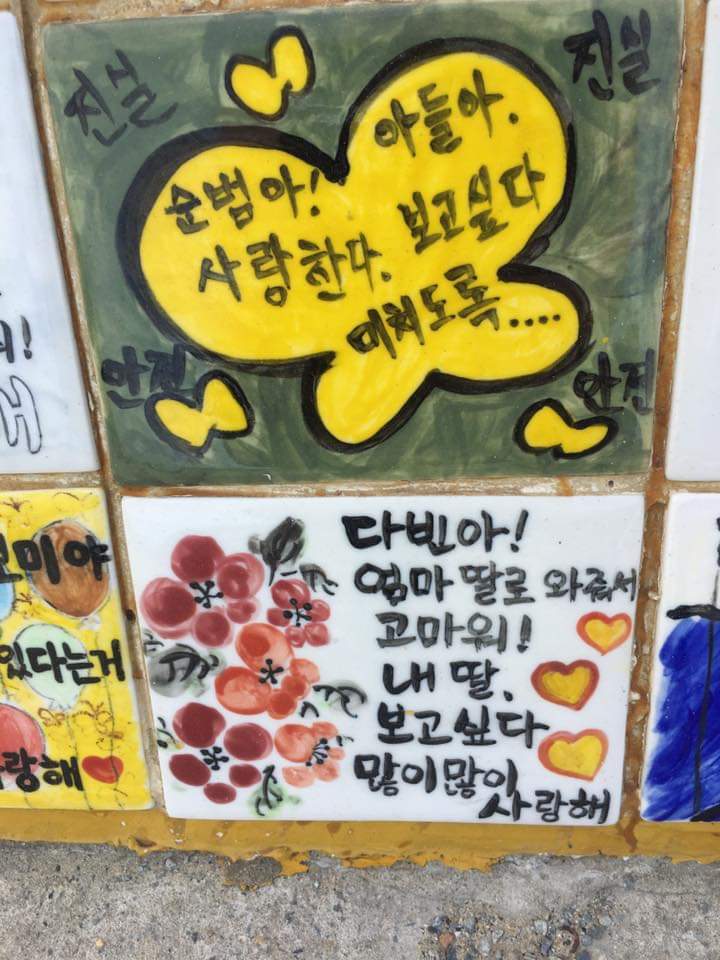 진실
진실
아들아.
순범아!
보고싶다
사랑한다.
미치도록....
안전
안전
다빈아!
엄마 딸로 와줘서
고마워!
내 딸.
보고싶다
많이많이
사랑해
미야
있다는거
랑해